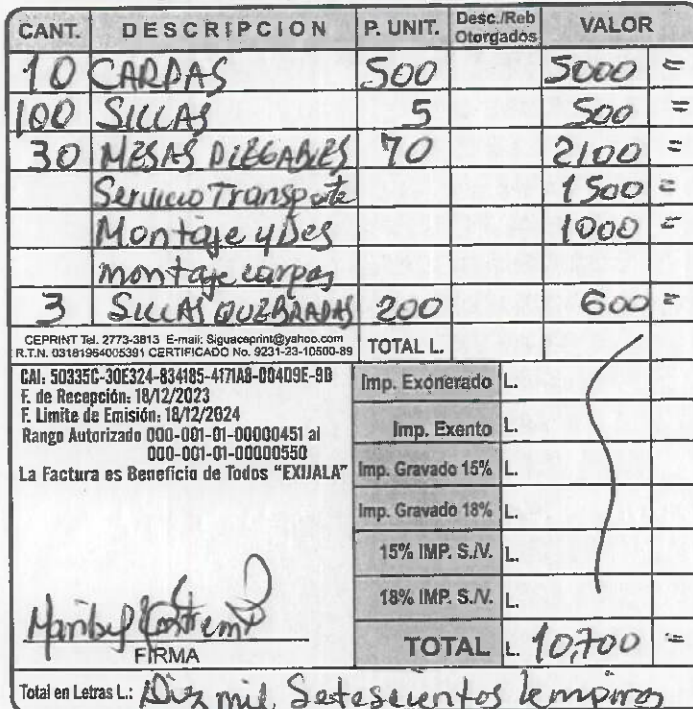 CANT. DESCRIPCION P. UNIT. Desc./Reb Otorgados VALOR
10 CARPAS 500 5000 =
100 SILLAS 5 500 =
30 MESAS PLEGABLES 70 2100 =
Servicio Transporte 1500 =
Montaje y Des 1000 =
montaje carpas
3 SILLAS QUEBRADAS 200 600 =
CEPRINT Tel. 2773-3813 E-mail: Siguaceprint@yahoo.com
R.T.N. 03181964005391 CERTIFICADO No. 9231-23-10500-89
TOTAL L.
CAI: 50335C-30E324-834185-4171A8-D04D9E-9B
F. de Recepción: 18/12/2023
F. Limite de Emisión: 18/12/2024
Rango Autorizado 000-001-01-00000451 al
000-001-01-00000550
La Factura es Beneficio de Todos "EXIJALA"
Imp. Exonerado L.
Imp. Exento L.
Imp. Gravado 15% L.
Imp. Gravado 18% L.
15% IMP. S./V. L.
18% IMP. S./V. L.
Maribel
FIRMA
TOTAL L. 10,700 =
Total en Letras L.: Diz mil Setesecientos lempiras